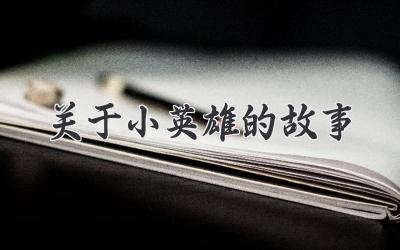 关于小英雄的故事